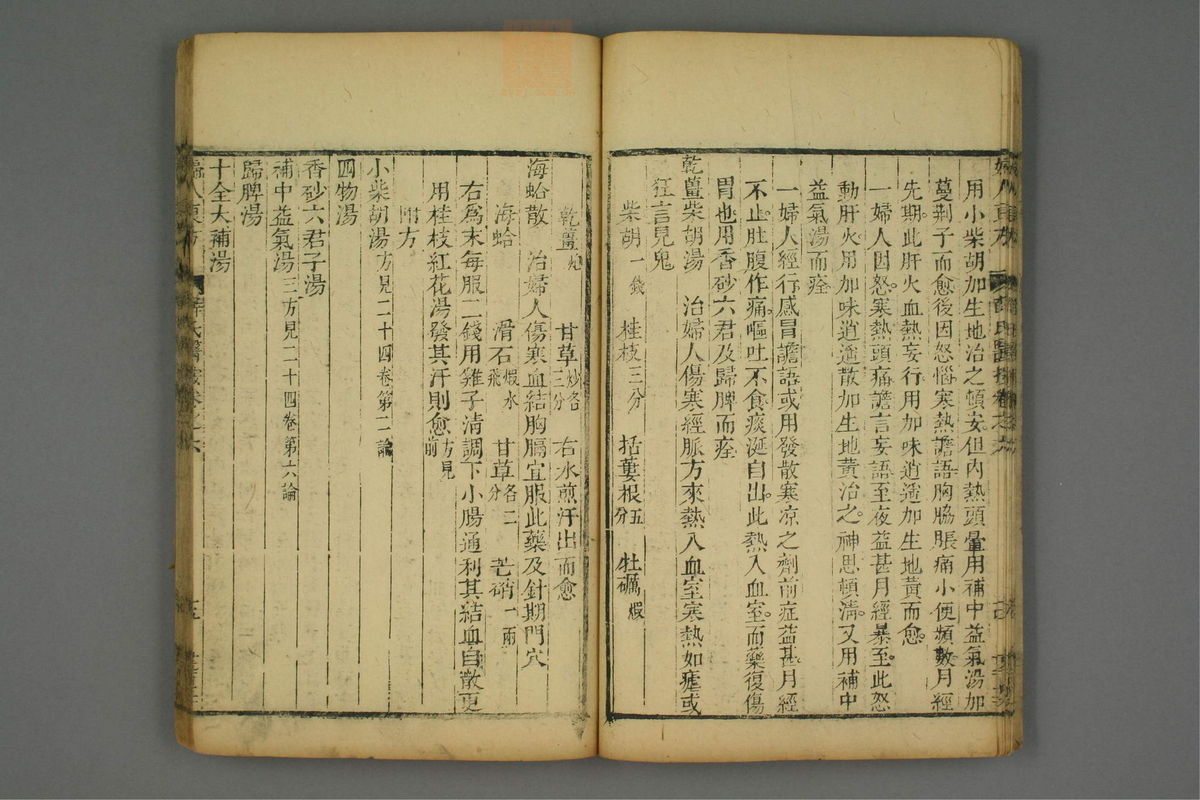 用小柴胡加生地治之頓安但內熱頭暈用補中益氣湯加
蔓荆子而愈後因怒惱寒熱譫語胸脇脹痛小便頻數月經
先期此肝火血熱妄行用加味逍遥加生地黃而愈
一婦人因怒寒熱頭痛譫言妄語至夜益甚月經暴至此怒
動肝火用加味逍遥散加生地黃治之神思頓清又用補中
益氣湯而痊
一婦人經行感冒譫語或用發散寒凉之劑前症益甚月經
不止肚腹作痛嘔吐不食痰涎自出此熱入血室而藥復傷
胃也用香砂六君及歸脾而痊
乾薑柴胡湯 治婦人傷寒經脈方來熱入血室寒熱如瘧或
狂言見鬼
柴胡一錢 桂枝三分 括蔞根五分 牡礪煆
乾薑炮 甘草炒各三分 右水煎汗出而愈
海蛤散 治婦人傷寒血結胸膈宜服此藥及針期門穴
海蛤 滑石煆水飛 甘草各二分 芒硝一兩
右爲末每服二錢用雞子清調下小腸通利其結血自散更
用桂枝紅花湯發其汗則愈方見前
附方
小柴胡湯方見二十四卷第二論
四物湯
香砂六君子湯
補中益氣湯三方見二十四卷第六論
歸脾湯
十全大補湯